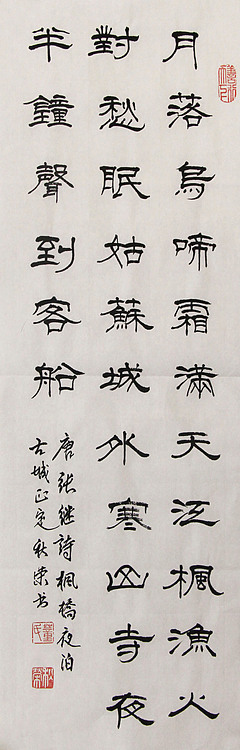 月落烏啼霜滿天江楓漁火
對愁眠姑蘇城外寒山寺夜
半鐘聲到客船
唐张继詩楓橋夜泊
古城正定秋榮书